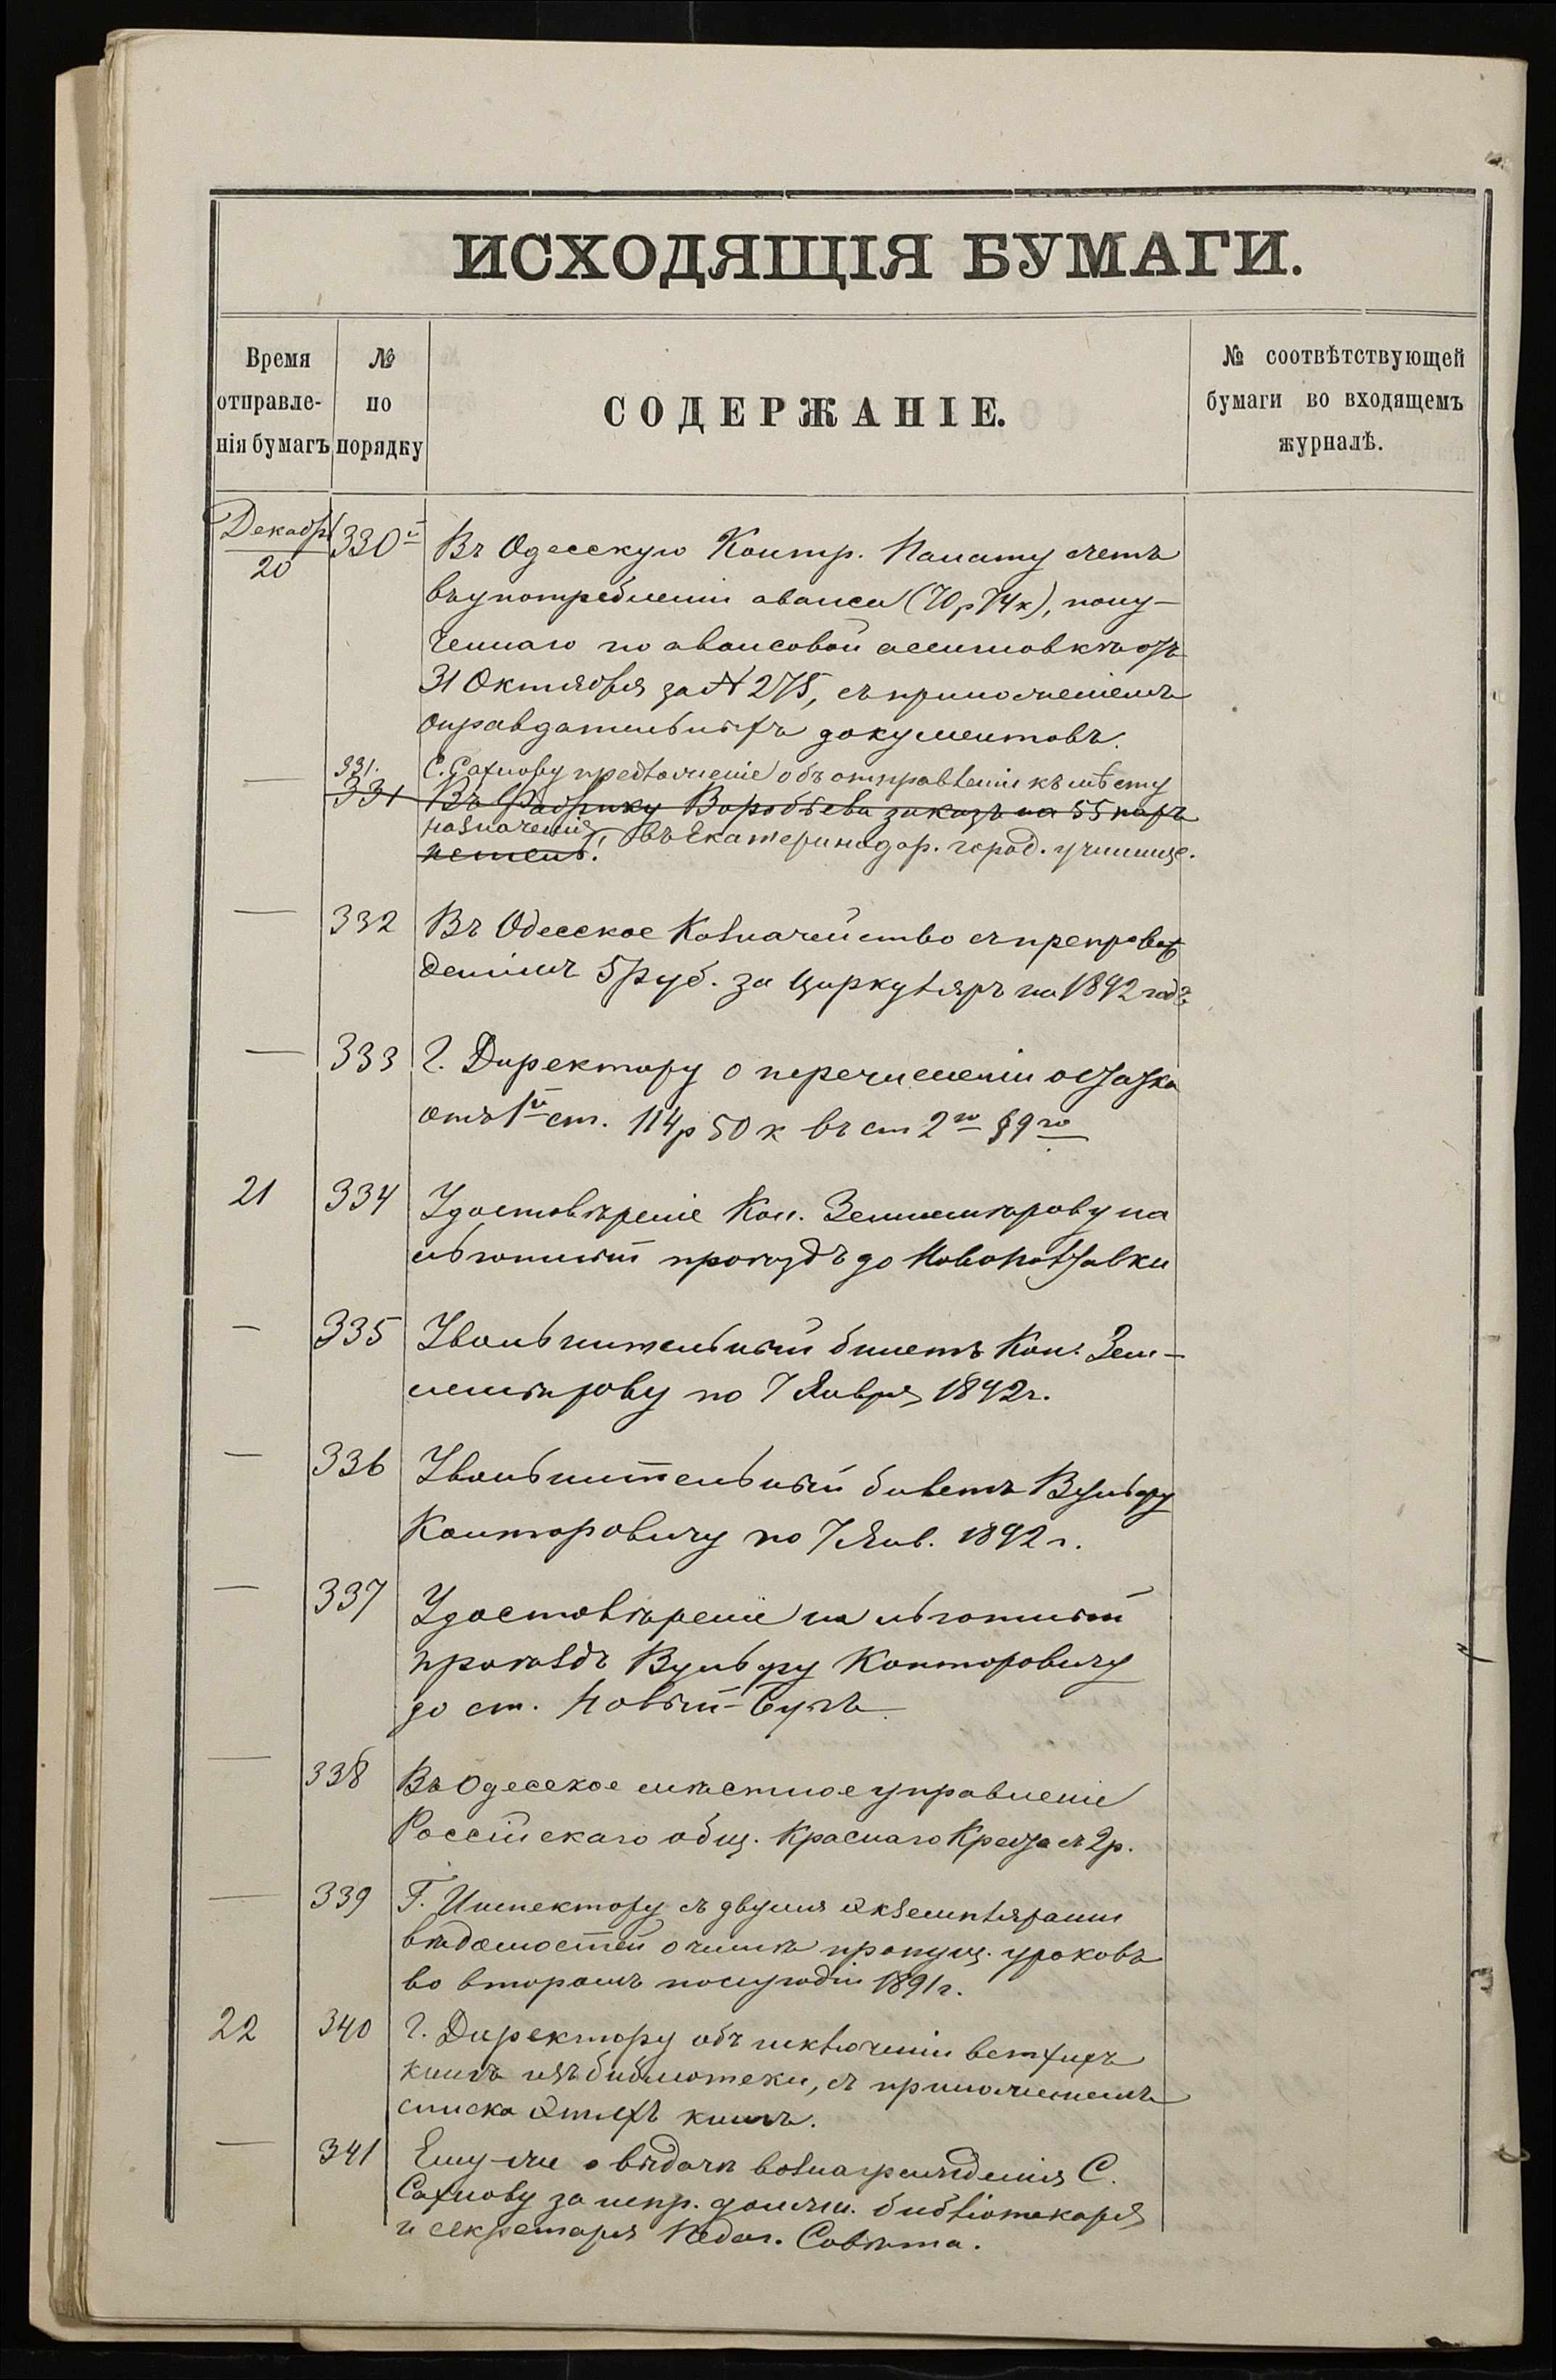 ИСХОДЯЩІЯ БУМАГИ.
Время отправле-нія бумагъ
№ по порядку
СОДЕРЖАНІЕ.
№ соотвѣтствующей бумаги во входящемъ журналѣ.
Декабрь 20
330й
Въ Одесскую Контр. Палату счетъ
въ употребленіи аванса (70 р 74 к), полу-
ченнаго по авансовой ассигновкѣ отъ
31 Октября за № 275, съ приложеніемъ
оправдательныхъ документовъ.
— 331. С. Сахнову предложеніе объ отправленіи къ мѣсту
331 Въ Фабрику Воробьева заказъ на 55 паръ
назначенія, въ Екатеринодар. город. училище.
петель.
— 332 Въ Одесское Казначейство съ препровож
деніемъ 5 руб. за Циркуляръ на 1892 годъ
— 333 Г. Директору о перечисленіи остатка
отъ 1й ст. 114 р 50 к въ ст 2ю § 9го
21 334 Удостовѣреніе Кон. Землемѣрову на
льготный проѣздъ до Новополтавки
— 335 Увольнительный билетъ Кон. Зем-
лемѣрову по 7 Января 1892 г.
— 336 Увольнительный билетъ Вульфу
Канторовичу по 7 Янв. 1892 г.
— 337 Удостовѣреніе на льготный
проѣздъ Вульфу Канторовичу
до ст. Новый-Бугъ
— 338 Въ Одесское мѣстное управленіе
Россійскаго общ. Краснаго Креста съ 2 р.
— 339 Г. Инспектору съ двумя экземплярами
вѣдомостей о числѣ пропущ. уроковъ
во второмъ полугодіи 1891 г.
22 340 Г. Директору объ исключеніи ветхихъ
книгъ изъ библіотеки, съ приложеніемъ
списка этихъ книгъ.
— 341 Ему-же о выдачѣ вознагражденія С.
Сахнову за испр. должн. библіотекаря
и секретаря Педаг. Совѣта.